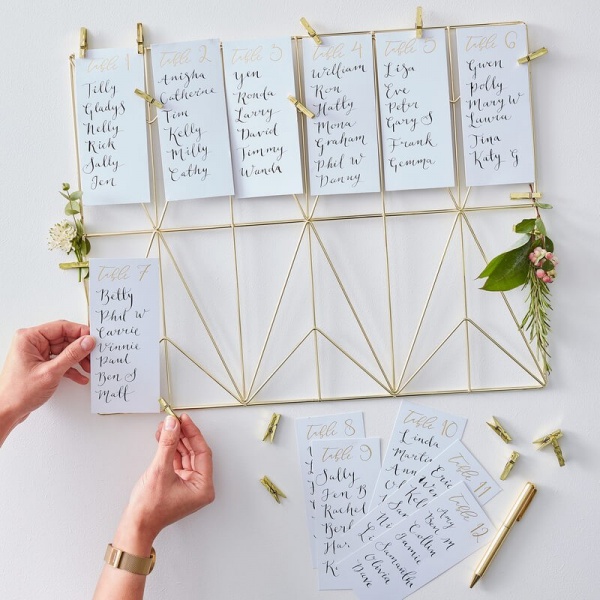 Table 1
Tilly
Gladys
Nelly
Rick
Sally
Jen
Table 2
Anisha
Catherine
Tim
Kelly
Milly
Cathy
Table 3
Yen
Ronda
Larry
David
Timmy
Wanda
Table 4
William
Ron
Hatty
Mona
Graham
Phil W
Danny
Table 5
Lisa
Eve
Peter
Gary S
Frank
Gemma
Table 6
Gwen
Polly
Mary W
Laura
Tina
Katy G
Table 7
Betty
Phil W
Carrie
Vinnie
Paul
Ben S
Matt
Table 8
Table 9
Sally
Jen B
Rachel
Table 10
Linda
Table 11
Eric
Table 12
Amy
Ben M
Collin
Jamie
Samantha
Olivia
Dave